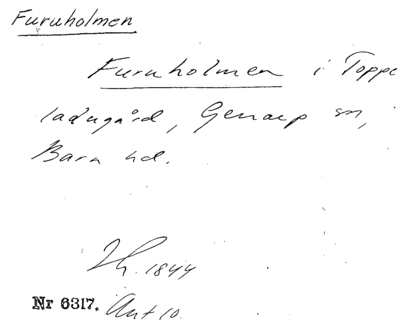 Furuholmen
Furuholmen i Toppe
ladugård, Genarp sn,
Bara hd.
Th. 1844
Nr 6317. Ant 10.